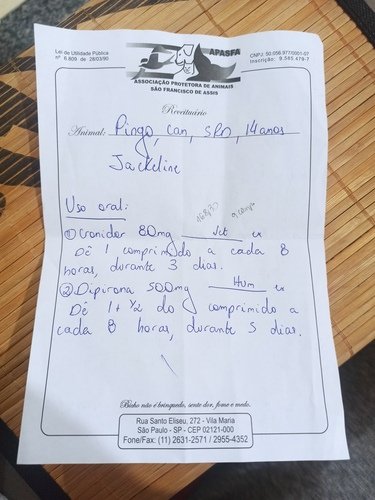 Lei de Utilidade Pública
nº 6.809 de 28/03/90
APASFA
CNPJ: 50.056.977/0001-07
Inscrição: 9.565.479-7
ASSOCIAÇÃO PROTETORA DE ANIMAIS
SÃO FRANCISCO DE ASSIS
Receituário
Animal: Pingo, can, SRD, 14 anos
Jackeline
Uso oral:
① Cronidor 80mg Vet cx
Dê 1 comprimido a cada 8
horas, durante 3 dias.
②. Dipirona 500mg Hum cx
Dê 1 + 1/2 do comprimido a
cada 8 horas, durante 5 dias.
Bicho não é brinquedo, sente dor, fome e medo.
Rua Santo Eliseu, 272 - Vila Maria
São Paulo - SP - CEP 02121-000
Fone/Fax: (11) 2631-2571 / 2955-4352